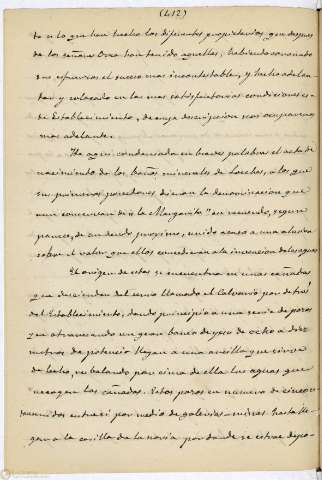 (412)
to a lo que han hecho los diferentes propietarios que despues
de los Señores Oreo han tenido aquellas; habiendo coronado
sus esfuerzos el suceso mas incontestable, y hecho adelan-
tar y colocado en las mas satisfactorias condiciones es-
te Establecimiento, de cuya descripcion nos ocuparemos
mas adelante.
He aqui condensada en breves palabras el acta de
nacimiento de los baños minerales de Loeches, a los que
sus primeros poseedores dieron la denominacion que
aun conservan de "la Margarita" en recuerdo, segun
parece, de un deudo proximo, unido acaso a una alusion
sobre el valor que ellos concedieron a la invencion de las aguas
El origen de estas se encuentra en unas cañadas
que descienden del cerro llamado el Calvario por detrás
del Establecimiento, dando principio a una serie de pozos
que atravesando un gran banco de yeso de ocho a diez
metros de potencia llegan a una arcilla que sirve
de lecho, resbalando por cima de ella las aguas que
recogen las cañadas. Estos pozos en numero de cinco co-
munidos entre si por medio de galerias-minas hasta lle-
gar a la orilla de la noria por donde se extrae depo-